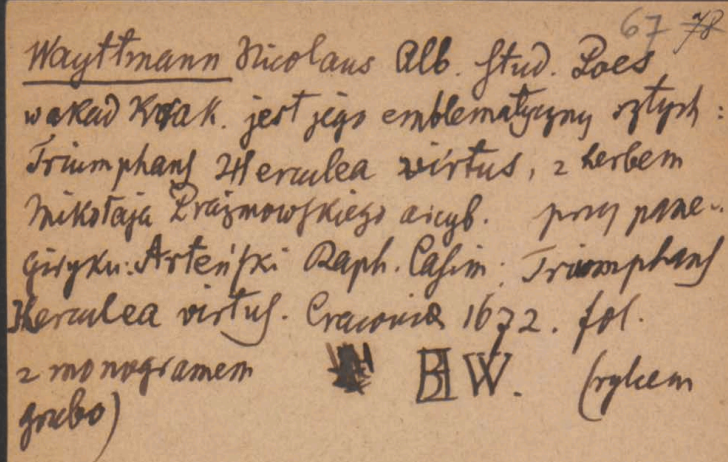 67 78
Wayttmann Nicolaus Alb. Stud. Poes
w akad Krak. jest jego emblematyczny sztych :
Triumphans Herculea virtus, z herbem
Mikołaja Prażmowskiego arcyb. przy pane-
giryku: Arteński Raph. Casim. Triumphans
Herculea virtus. Cracoviae 1672. fol.
z monogramem W. (rylcem
grubo)